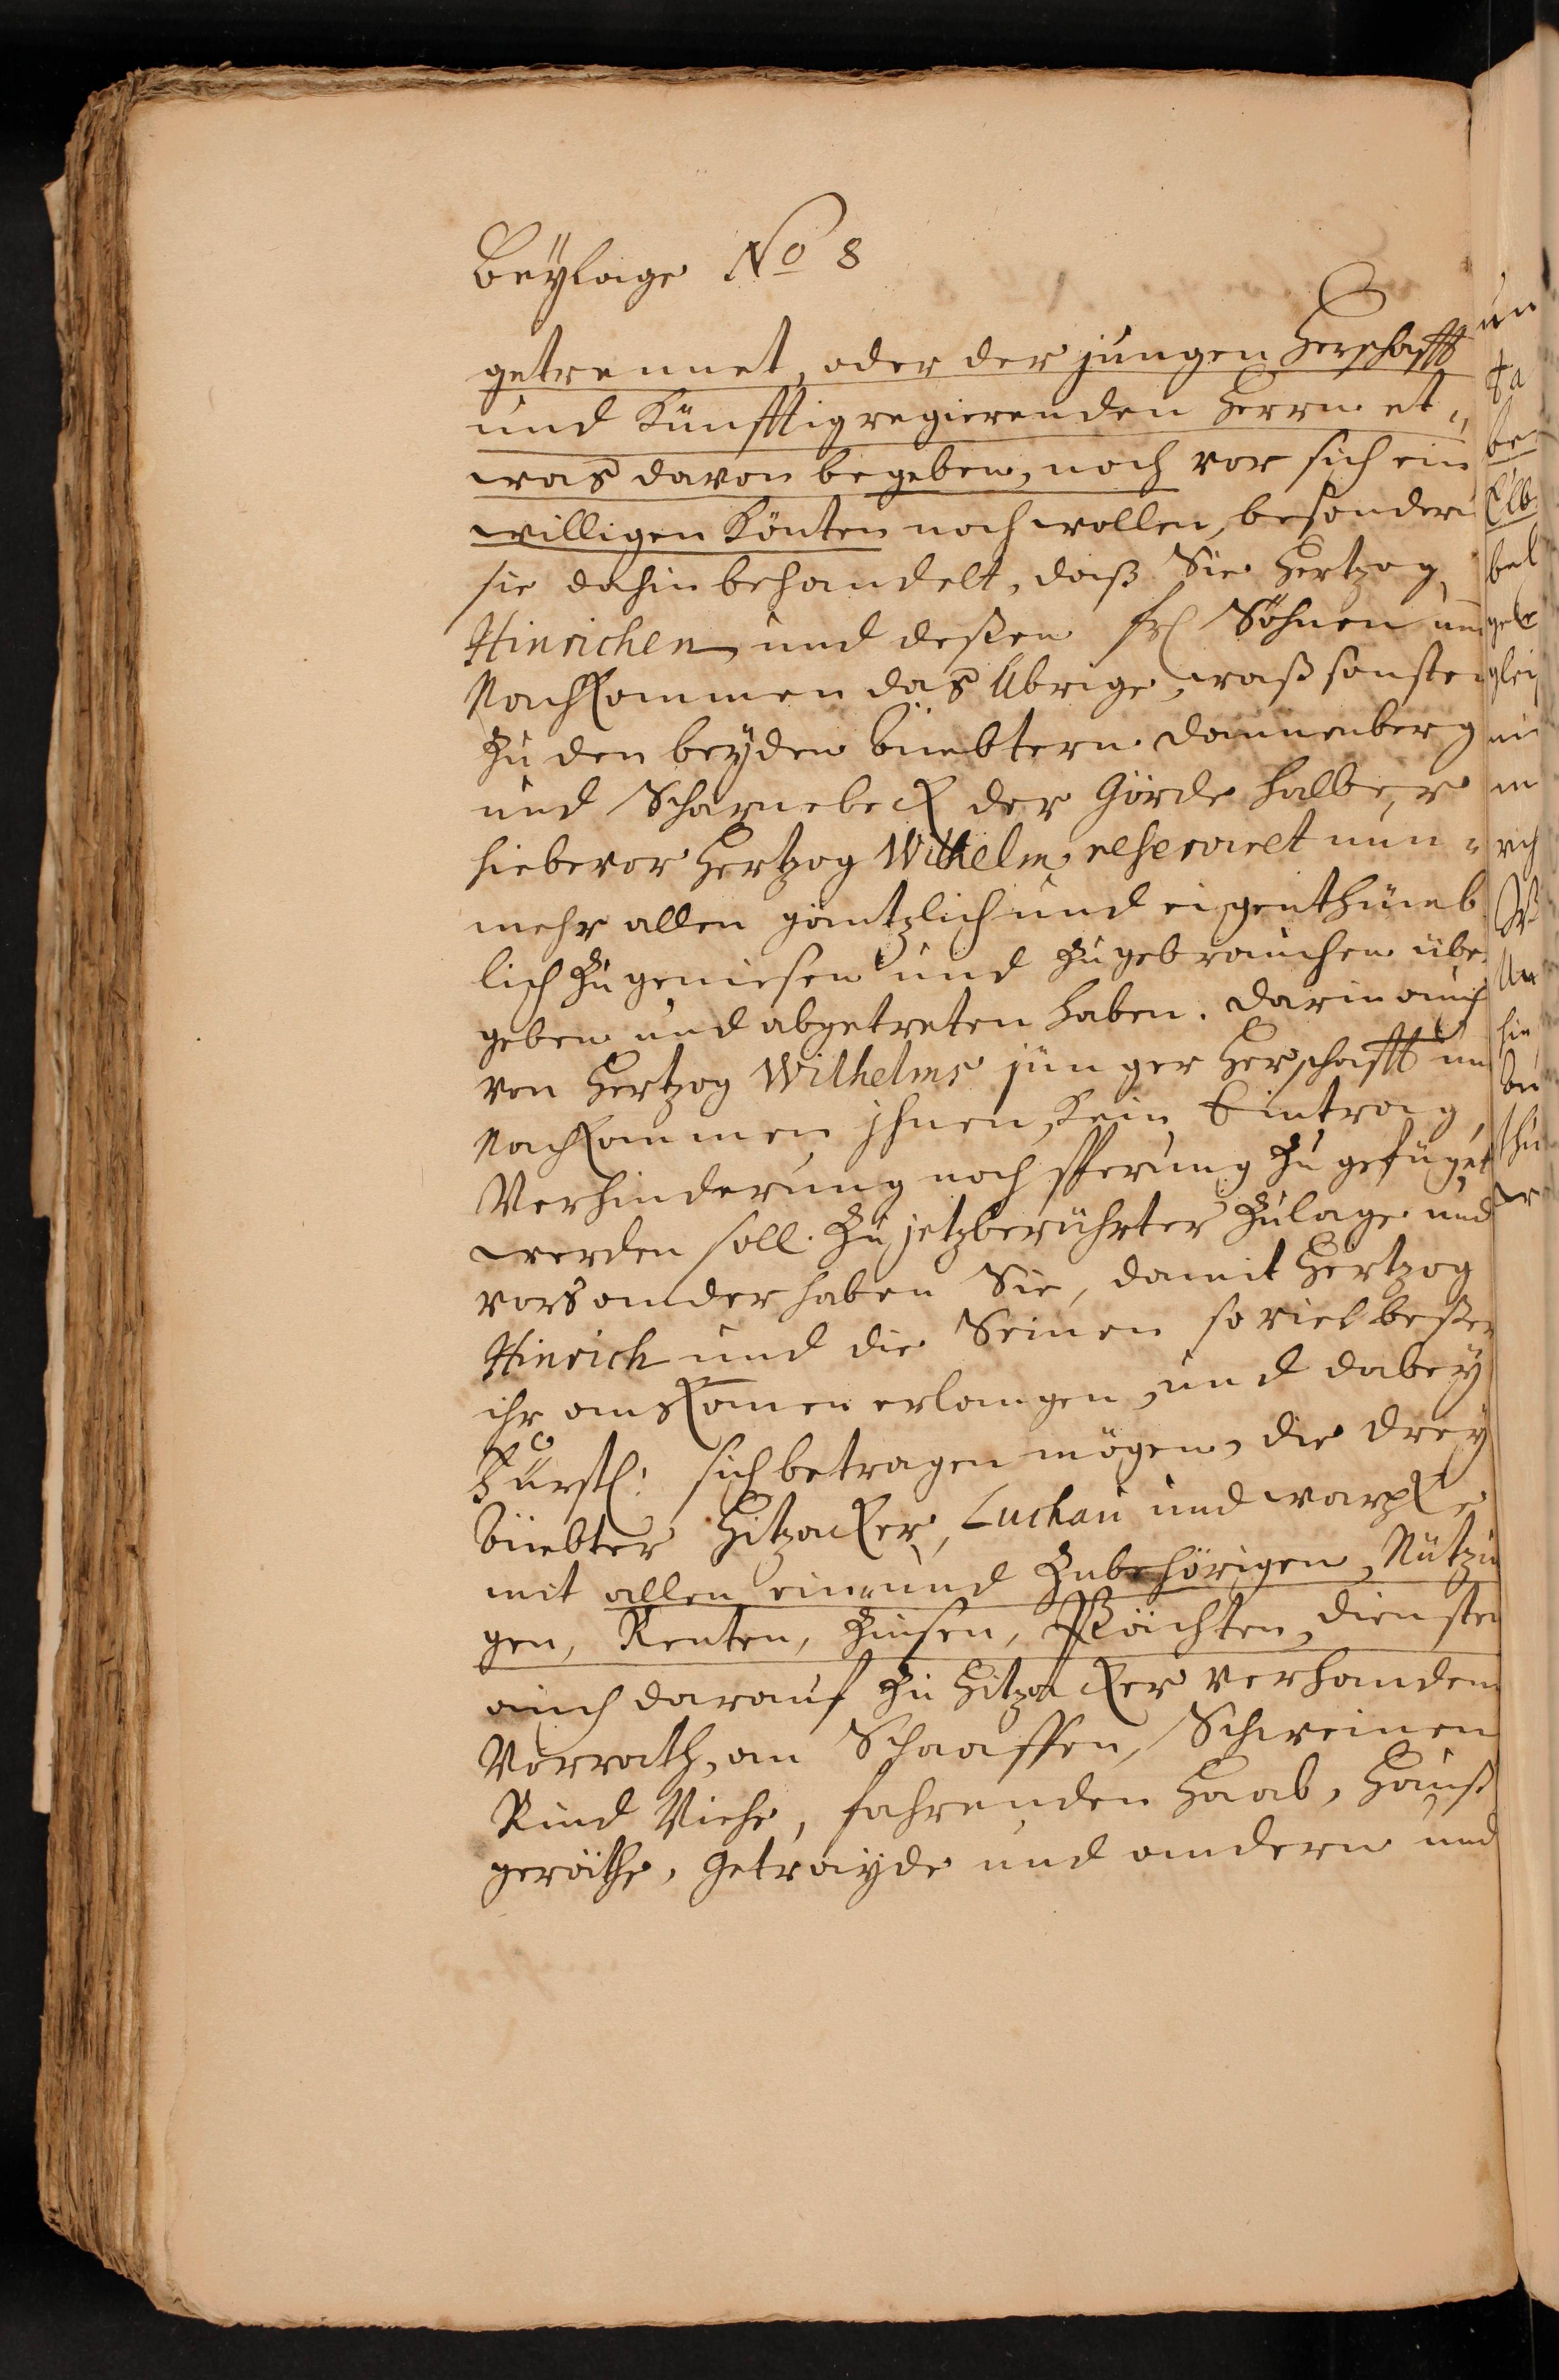 Beÿlage No 8
getrennet, oder der jungen Herschafft
und Künfftig regierenden Herrn et„
was davon begeben, noch vor sich ein
willigen Könten noch wollen, besondern
sie dahin behandelt, daß Sie Hertzog
Hinrichen und deßen frl Söhnen und
Nachkommen das Übrige, waß sonsten
Zu den beÿden Ämbtern Dannenberg
und Scharnebeck der Görde halber
hiebevor Hertzog Wilhelm reservirt nun
mehr allen gäntzlich und eigenthümb
lich Zu geniesen und Zu gebrauchen über
geben und abgetreten haben. Darin auch
von Hertzog Wilhelms jünger Herschafft und
Nachkommen ihnen, kein Eintrag,
Verhinderung noch Sperrung Zu gefüget
werden soll. Zu jetzberührter Zulage und
vors ander haben Sie, damit Hertzog
Hinrich und die Seinen so viel beßer
ihr auskomen erlangen, und dabeÿ
Fürstl: sich betragen mögen, die dreÿ
Ämbter Hitzacker, Luchau und warpke
mit allen ein und Zubehörigen, Nützun
gen, Renten, Zinsen, Pächten, Diensten
auch darauf Zu Hitzacker verhanden
Vorrath, an Schaaffen, Schweinen
Rind Viehe, fahrenden Haab, Hauß
geräthe, Getraÿde und andern und
un
be
Elb
bel
gele
glei